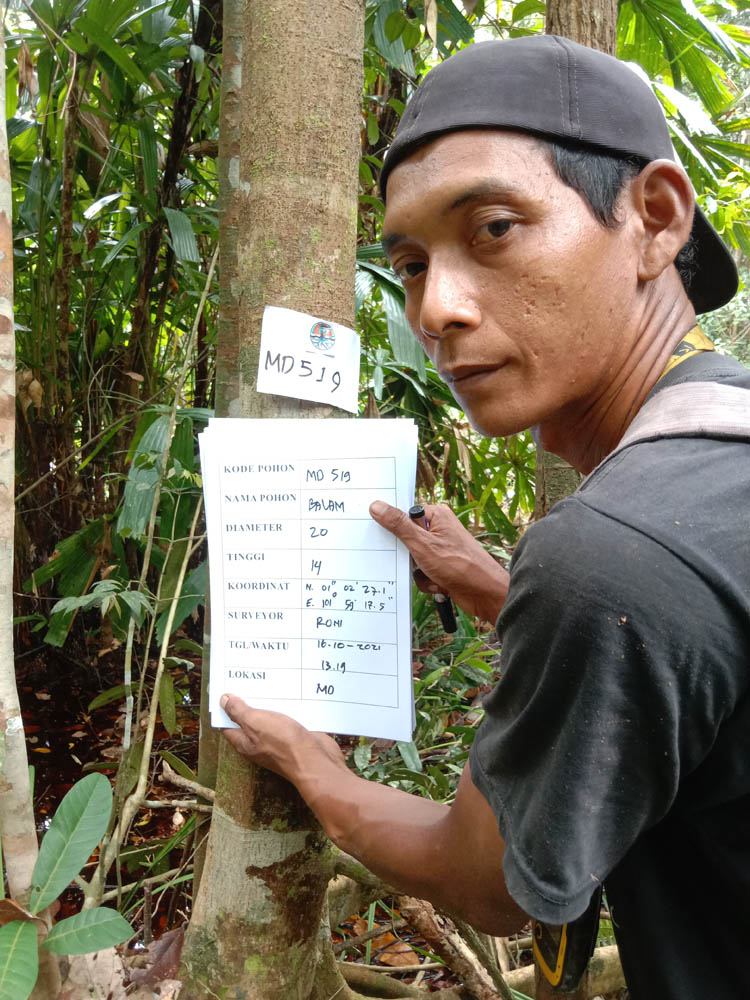 MD 519
KODE POHON MD 519
NAMA POHON BALAM
DIAMETER 20
TINGGI 14
KOORDINAT N. 01° 02' 27.1"
E. 101° 59' 17.5"
SURVEYOR RONI
TGL/WAKTU 16-10-2021
13.19
LOKASI MD